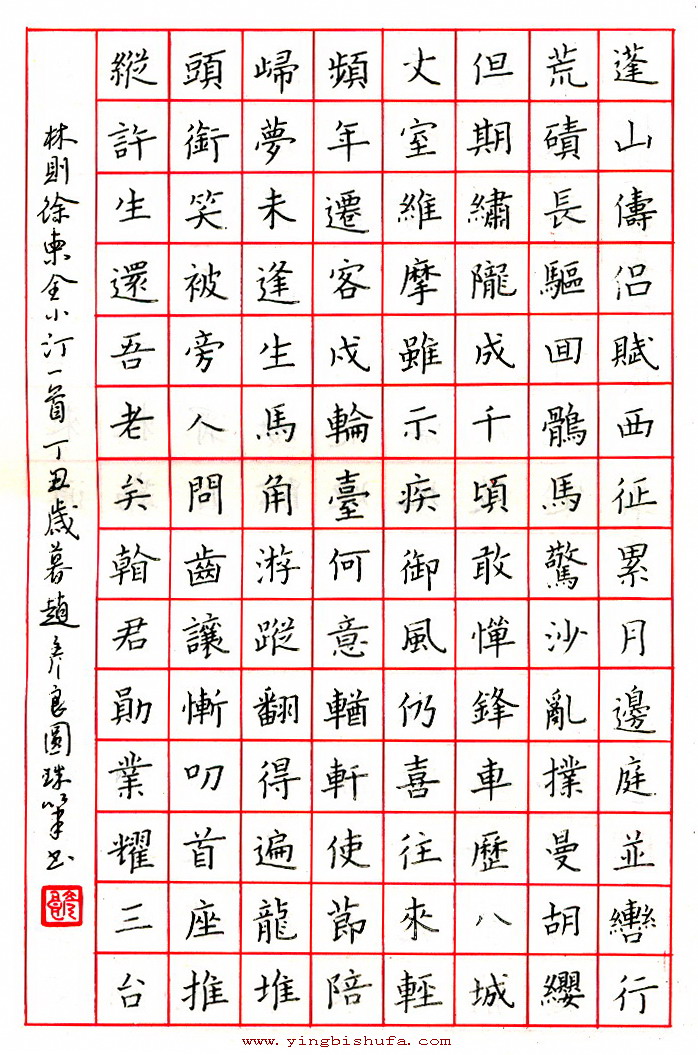 蓬山儔侶賦西征累月邊庭並轡行
荒磧長驅囬鶻馬驚沙亂撲曼胡纓
但期繡隴成千頃敢憚鋒車歷八城
丈室維摩雖示疾御風仍喜往來輕
頻年遷客戍輪臺何意輶軒使節陪
歸夢未逢生馬角游蹤翻得遍龍堆
頭銜笑被旁人問齒讓慚叨首座推
縱許生還吾老矣看君勛業耀三台
林則徐柬全小汀一首 丁丑歲暮趙彥良圓珠筆书
www.yingbishufa.com